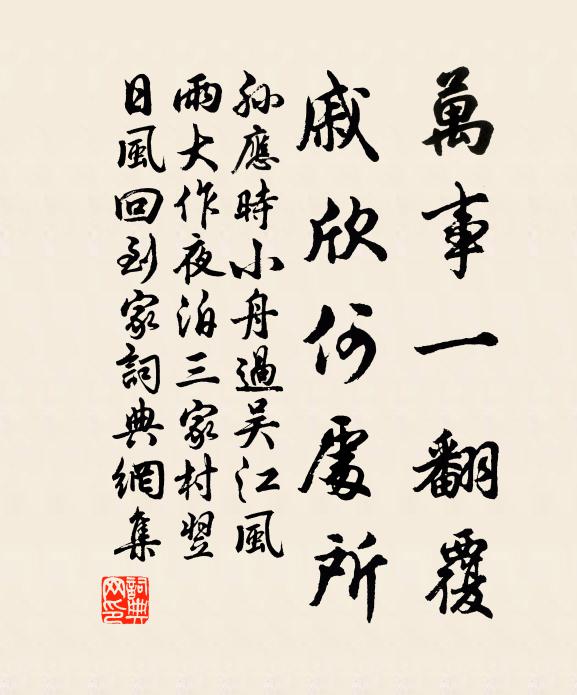 萬事一翻覆
戚欣何處所
孫應時小舟過吴江風
雨大作夜泊三家村翌
日風回到家詞典網集
詞典網印